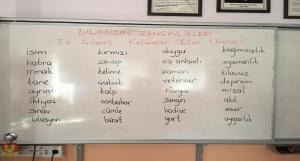 DİLİMİZİN ZENGİNLİKLERİ
Eş Anlamlı Kelimeler (Bilen Okunur)
isim kırmızı duygu bağımsızlık
hatıra cevap eş anlamlı egemenlik
ırmak kelime zaman kılavuz
tane şubat veteriner deprem
ayrım kalp rüzgar misal
ihtiyaç sonbahar zengin akıl
sınav cümle hadise eser
ulaşım basit yurt uygarlık